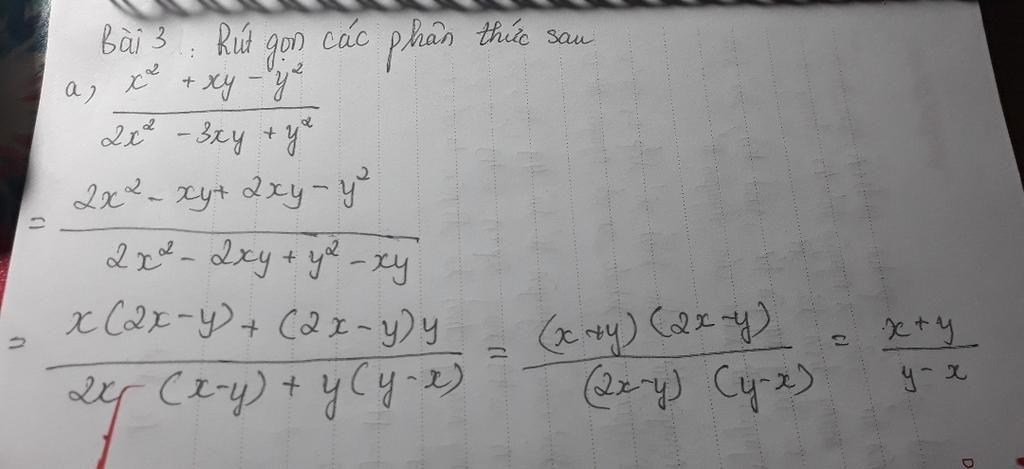 Bài 3 : Rút gọn các phân thức sau
a, \frac{x^2 + xy - y^2}{2x^2 - 3xy + y^2}
= \frac{2x^2 - xy + 2xy - y^2}{2x^2 - 2xy + y^2 - xy}
= \frac{x(2x-y) + (2x-y)y}{2x (x-y) + y(y-x)} = \frac{(x+y)(2x-y)}{(2x-y) (y-x)} = \frac{x+y}{y-x}